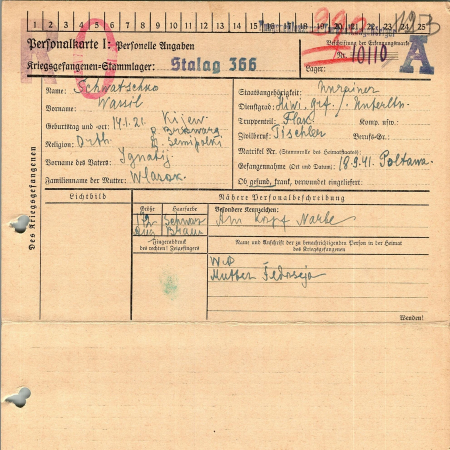 1 2 3 4 5 6 7 8 9 10 11 12 13 14 15 16 17 18 19 20 21 22 23 24 25
Personalkarte I: Personelle Angaben
Beschriftung der Erkennungsmarke
Kriegsgefangenen-Stammlager: Stalag 366
Nr. 10110
Lager:
A
Des Kriegsgefangenen
Name: Schwatschko
Vorname: Wassil
Geburtstag und -ort: 14.1.21. Kijew
Religion: Orth.
Vorname des Vaters: Ignatij
Familienname der Mutter:
Staatsangehörigkeit: Ukrainer
Dienstgrad:
Truppenteil: Flak Komp. usw.:
Zivilberuf: Tischler Berufs-Gr.:
Matrikel Nr. (Stammrolle des Heimatstaates):
Gefangennahme (Ort und Datum): 18.9.41. Poltawa
Ob gesund, krank, verwundet eingeliefert:
Lichtbild
Nähere Personalbeschreibung
Größe Haarfarbe Besondere Kennzeichen:
Schwarz Am Kopf Narbe
Braun
Fingerabdruck
des rechten! Zeigefingers
Name und Anschrift der zu benachrichtigenden Person in der Heimat
des Kriegsgefangenen
W.O
Mutter
Wenden!